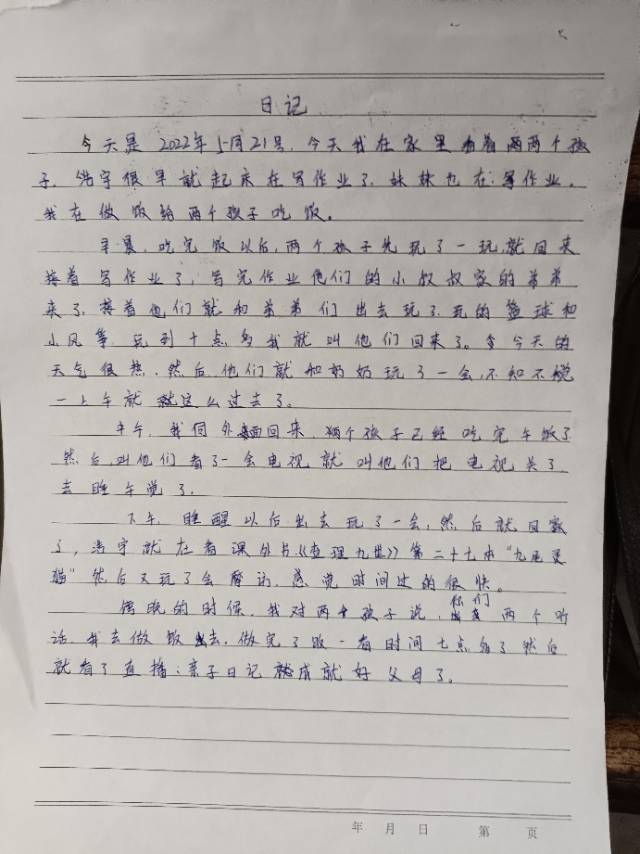 日记
今天是2022年5月21号,今天我在家里看着两两个孩
子,浩宇很早就起床在写作业了,妹妹也在写作业。
我在做饭给两个孩子吃饭。
早晨,吃完饭以后,两个孩子先玩了一玩,就回来
接着写作业了,写完作业他们的小叔叔家的弟弟
来了,接着他们就和弟弟们出去玩了,玩的篮球和
小风筝,玩到十点多我就叫他们回来了。今天的
天气很热,然后他们就和奶奶玩了一会,不知不觉
一上午就这么过去了。
中午,我何外面回来,两个孩子已经吃完午饭了
然后,叫他们看了一会电视就叫他们把电视关了,
去睡午觉了。
下午,睡醒以后出去玩了一会,然后就回家
了,浩宇就在看课外书《查理九世》第二十七本“九尾灵
猫”然后又玩了会魔访,感觉时间过的很快。
傍晚的时候,我对两个孩子说,你们两个听
话,我去做饭去,做完了饭一看时间七点多了然后
就看了直播:亲子日记就成就好父母了。
年 月 日 第 页